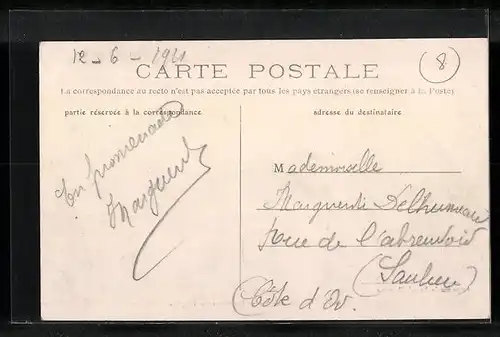 12 - 6 - 1921
8
CARTE POSTALE
La correspondance au recto n'est pas acceptée par tous les pays étrangers (se renseigner à la Poste)
partie réservée à la correspondance
adresse du destinataire
En promenade
Marguerite
Mademoiselle
Marguerite Delhumeau
Rue de l'abreuvoir
(Saulieu
(Côte d'Or.